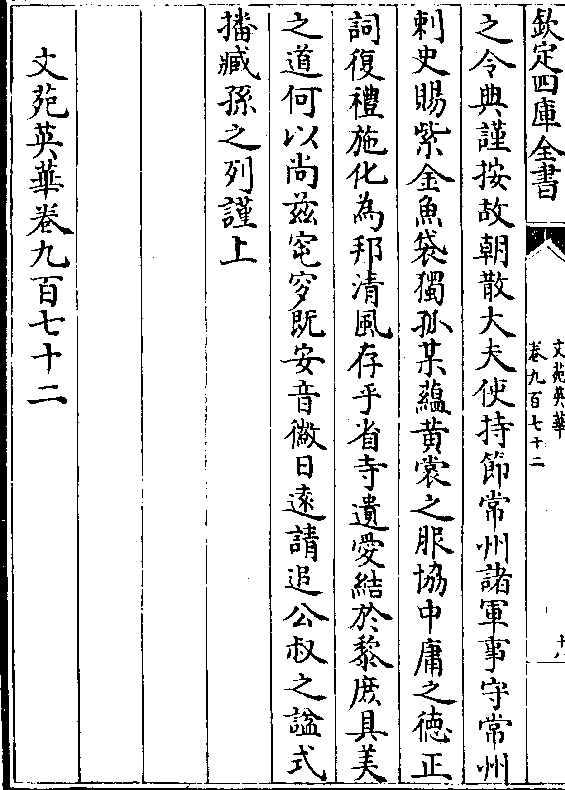 欽定四庫全書
文苑英華
卷九百七十二
十八
之令典謹按故朝散大夫使持節常州諸軍事守常州
刺史賜紫金魚袋獨孤某藴黄裳之服協中庸之徳正
詞復禮施化為邦清風存乎省寺遺愛結於黎庶具美
之道何以尚兹窀穸既安音徽日逺請追公叔之諡式
播臧孫之列謹上
文苑英華卷九百七十二